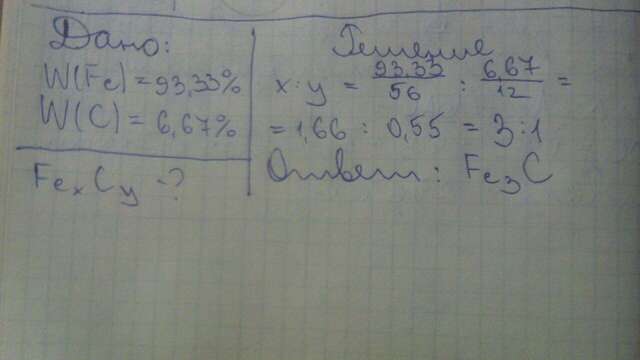 Дано:
W(Fe) = 93,33%
W(C) = 6,67%
FexCy - ?
Решение
x:y = 93,33/56 : 6,67/12 =
= 1,66 : 0,55 = 3:1
Ответ: Fe3C